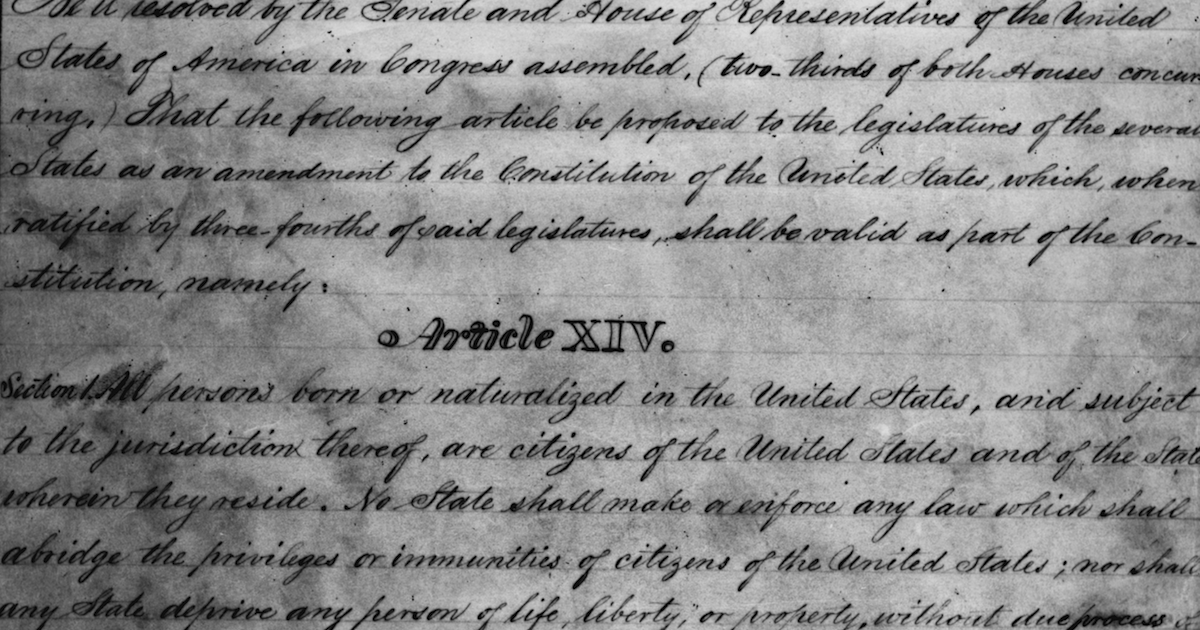 Be it resolved by the Senate and House of Representatives of the United
States of America in Congress assembled, (two-thirds of both Houses concur
ring,) That the following article be proposed to the legislatures of the several
States as an amendment to the Constitution of the United States, which, when
ratified by three-fourths of said legislatures, shall be valid as part of the Con-
stitution, namely:
Article XIV.
Section 1. All persons born or naturalized in the United States, and subject
to the jurisdiction thereof, are citizens of the United States and of the State
wherein they reside. No State shall make or enforce any law which shall
abridge the privileges or immunities of citizens of the United States; nor shall
any State deprive any person of life, liberty, or property, without due process